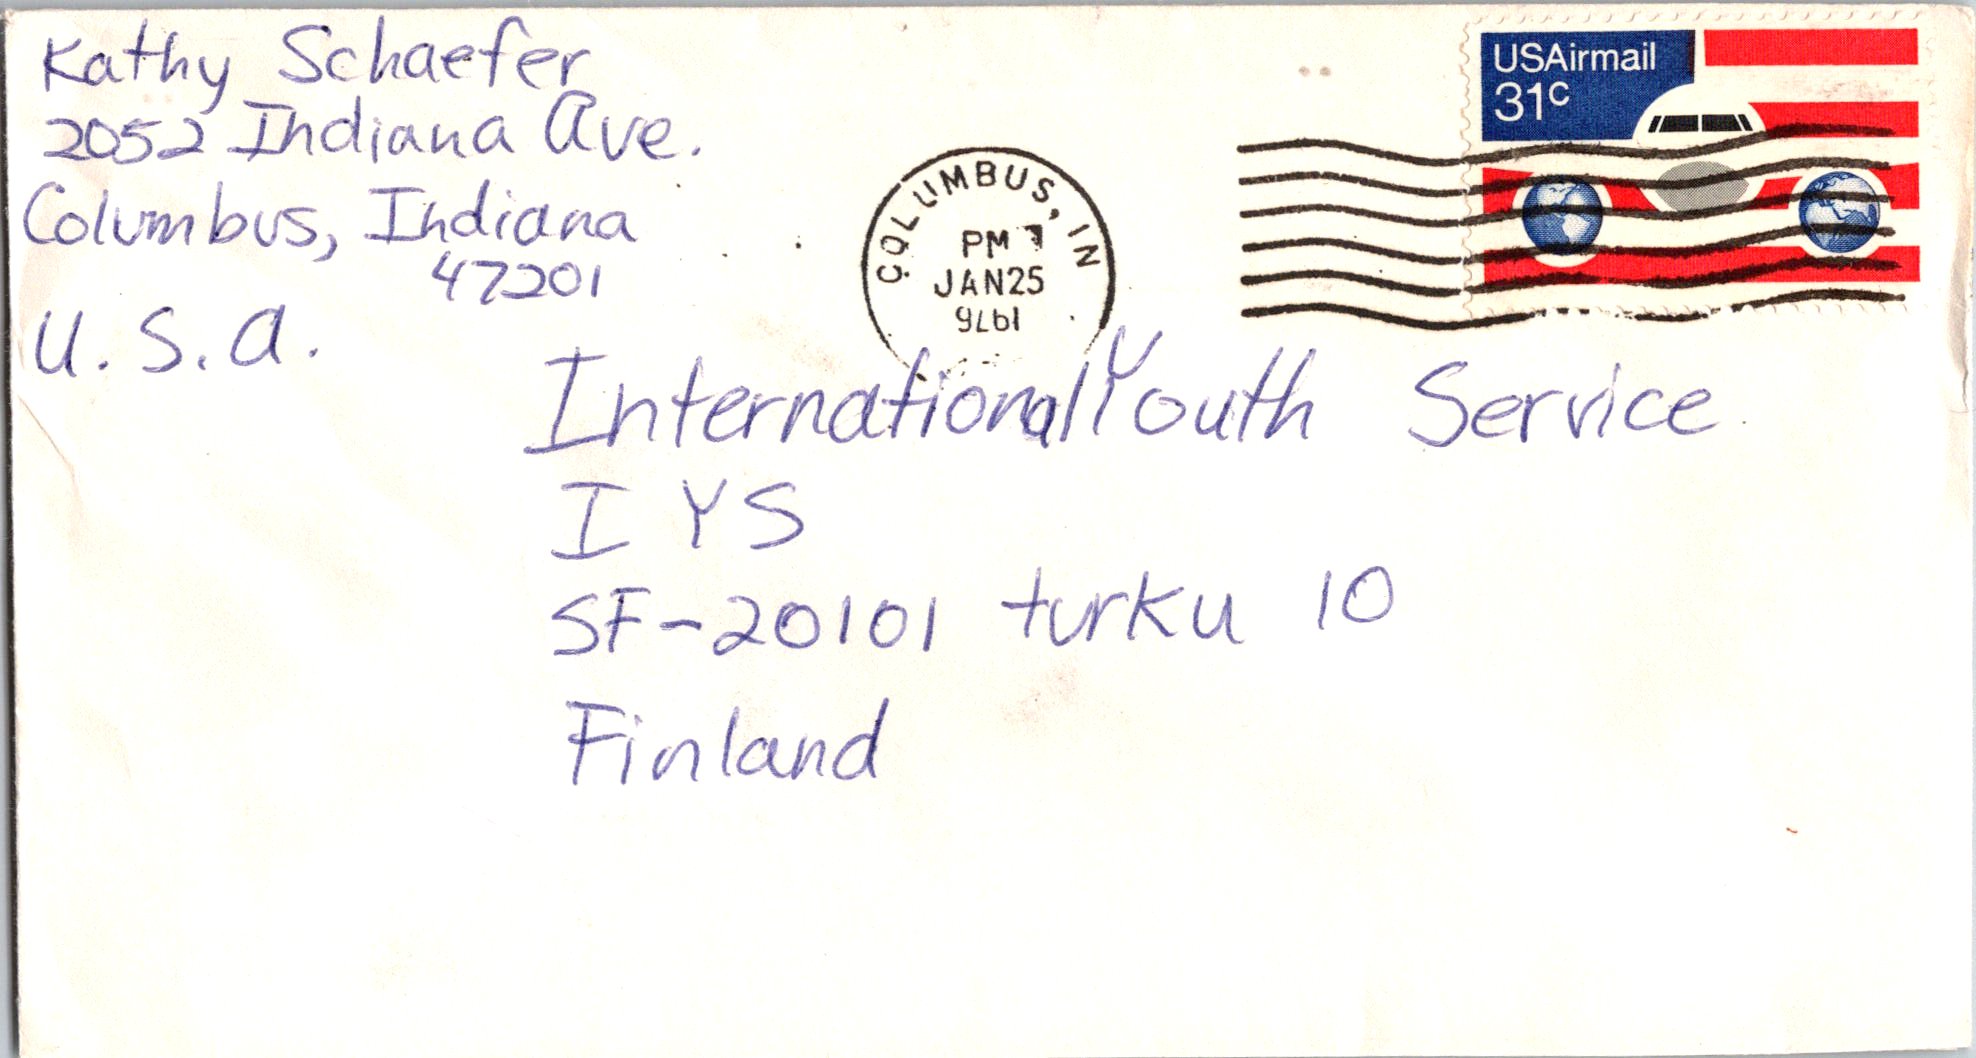 Kathy Schaefer
2052 Indiana Ave.
Columbus, Indiana
47201
U.S.A.
USAirmail
31c
COLUMBUS, IN
PM
JAN25
1976
International Youth Service
IYS
SF-20101 turku 10
Finland